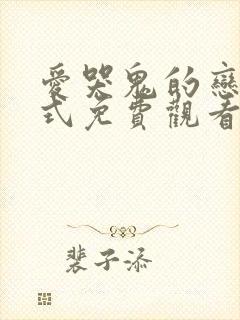 愛哭鬼的戀
式免費觀看
裴子添